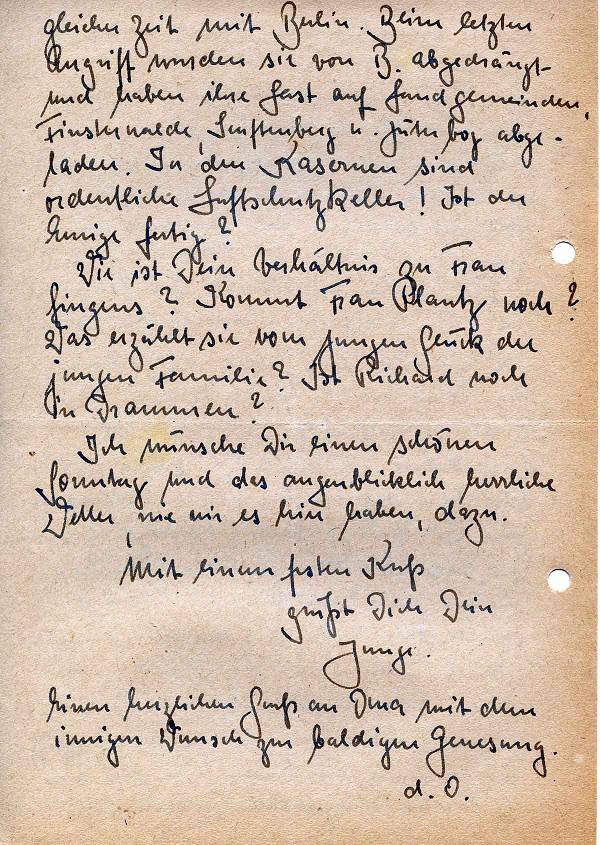 gleichen Zeit mit Berlin. Beim letzten
Angriff wurden sie von B. abgedrängt
und haben ihre Last auf Landgemeinden,
Finsterwalde, Senftenberg u. Jüterbog abge-
laden. In den Kasernen sind
ordentliche Luftschutzkeller! Ist der
hiesige fertig?
Wie ist Dein Verhältnis zu Frau
? Kommt Frau Plantz noch?
Was erzählt sie vom jungen Glück der
jungen Familie? Ist Richard noch
in Drammen?
Ich wünsche Dir einen schönen
Sonntag und das augenblicklich herrliche
Wetter, wie wir es hier haben, dazu.
Mit einem festen Kuß
grüßt Dich Dein
Junge.
Einen herzlichen Gruß an Oma mit dem
innigen Wunsch zur baldigen Genesung.
d. O.